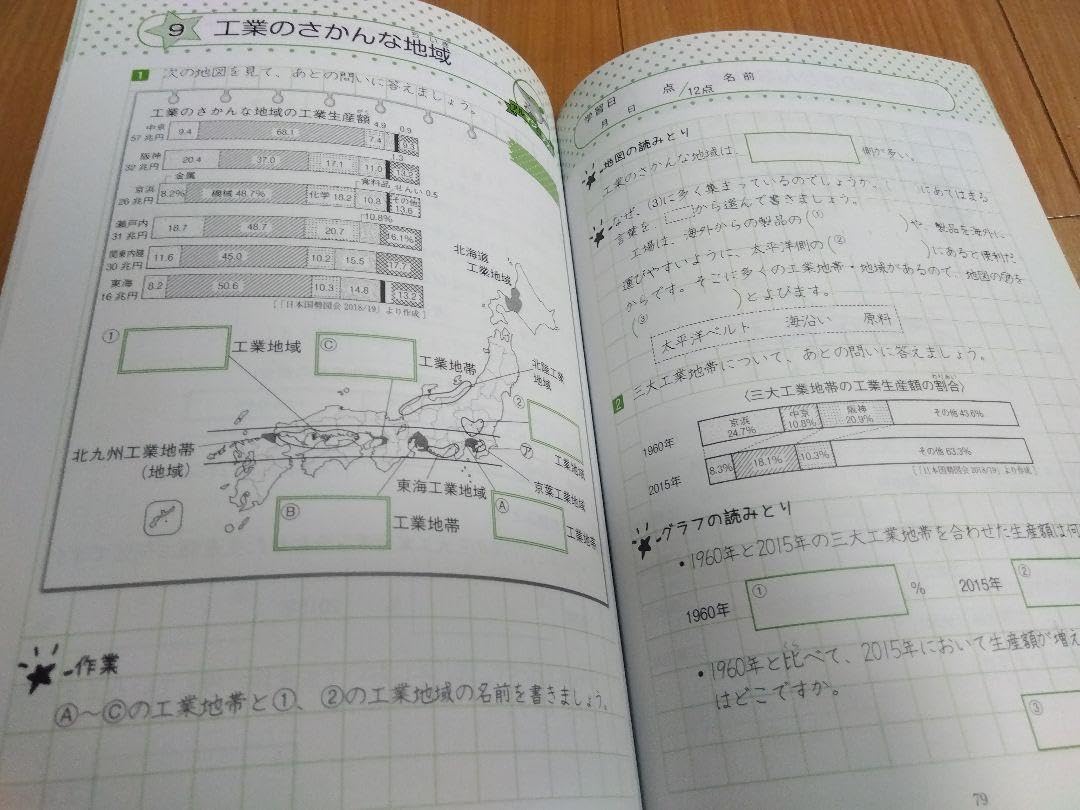 9 工業のさかんな地域
ちいき
1 次の地図を見て、あとの問いに答えましょう。
工業のさかんな地域の工業生産額
中京 57兆円 9.4 68.1 7.4 4.9 0.9
阪神 32兆円 20.4 37.0 17.1 11.0 1.3 13.2
金属 食料品 せんい 0.5
京浜 26兆円 8.2% 機械 48.7% 化学 18.2 10.8 その他 13.6
10.8%
瀬戸内 31兆円 18.7 48.7 20.7 16.1%
関東内陸 30兆円 11.6 45.0 10.2 15.5 17.7
東海 16兆円 8.2 50.6 10.3 14.8 13.2
[『日本国勢図会 2018/19』より作成]
北海道
工業地域
① 工業地域
Ⓒ 工業地帯
北陸工業
地域
② 工業地域
㋐
北九州工業地帯
(地域)
東海工業地域
京葉工業地域
Ⓑ 工業地帯
Ⓐ 工業地帯
作業
Ⓐ〜Ⓒの工業地帯と①、②の工業地域の名前を書きましょう。
学習日 月 日
点/12点
名前
地図の読みとり
工業のさかんな地域は、 側が多い。
なぜ、(3)に多く集まっているのでしょうか。( )にあてはまる
言葉を、 から選んで書きましょう。
工場は、海外からの製品の(① )や、製品を海外に
運びやすいように、太平洋側の(② )にあると便利だ
からです。そこに多くの工業地帯・地域があるので、地図の㋐を
(③ )とよびます。
太平洋ベルト 海沿い 原料
2 三大工業地帯について、あとの問いに答えましょう。
〈三大工業地帯の工業生産額の割合〉
わりあい
1960年 京浜 24.7% 中京 10.8% 阪神 20.9% その他 43.6%
2015年 8.3% 18.1% 10.3% その他 63.3%
[『日本国勢図会 2018/19』より作成]
グラフの読みとり
・1960年と2015年の三大工業地帯を合わせた生産額は何
1960年 ① % 2015年 ②
・1960年と比べて、2015年において生産額が増え
はどこですか。
③
79